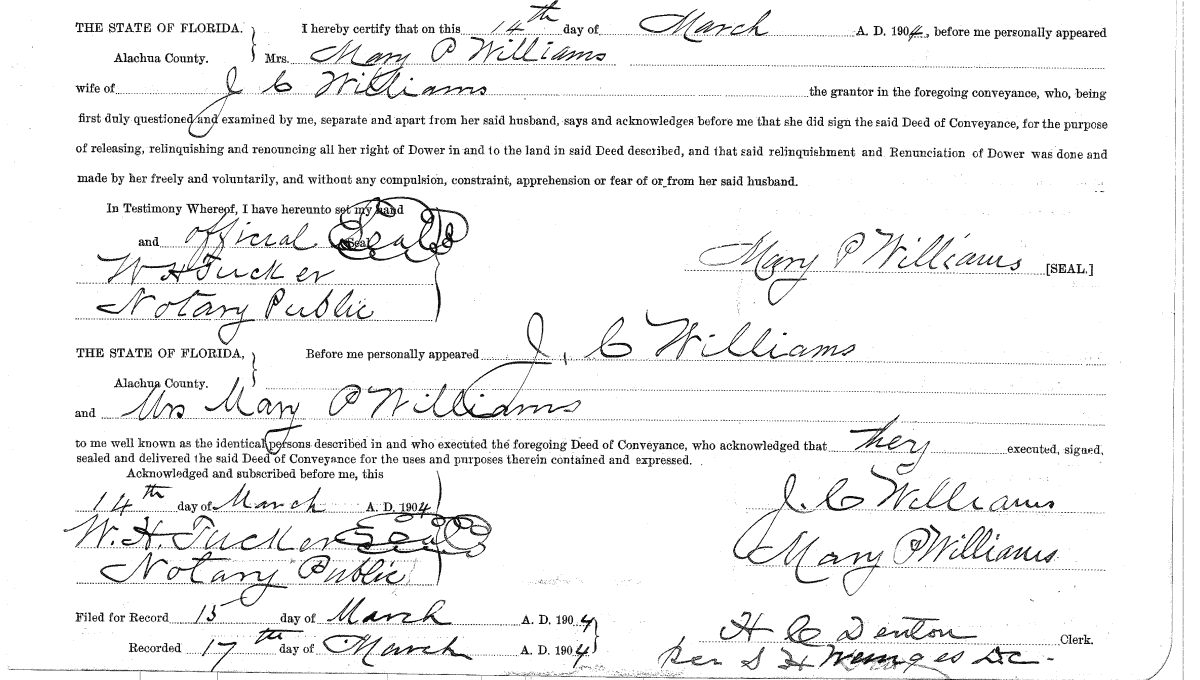 THE STATE OF FLORIDA. } I hereby certify that on this 14th day of March A. D. 1904, before me personally appeared
Alachua County. Mrs. Mary P Williams
wife of J C Williams the grantor in the foregoing conveyance, who, being
first duly questioned and examined by me, separate and apart from her said husband, says and acknowledges before me that she did sign the said Deed of Conveyance, for the purpose
of releasing, relinquishing and renouncing all her right of Dower in and to the land in said Deed described, and that said relinquishment and Renunciation of Dower was done and
made by her freely and voluntarily, and without any compulsion, constraint, apprehension or fear of or from her said husband.
In Testimony Whereof, I have hereunto set my hand
and official Seal
Mary P Williams [SEAL.]
W H Tucker
Notary Public
THE STATE OF FLORIDA, } Before me personally appeared J. C Williams
Alachua County.
and Mrs Mary P Williams
to me well known as the identical persons described in and who executed the foregoing Deed of Conveyance, who acknowledged that they executed, signed,
sealed and delivered the said Deed of Conveyance for the uses and purposes therein contained and expressed.
Acknowledged and subscribed before me, this
14th day of March A. D. 1904
J. C Williams
W. H. Tucker Seal
Mary P Williams
Notary Public
Filed for Record 15 day of March A. D. 1904
H C Denton Clerk.
Recorded 17th day of March A. D. 1904
per S H D.C.